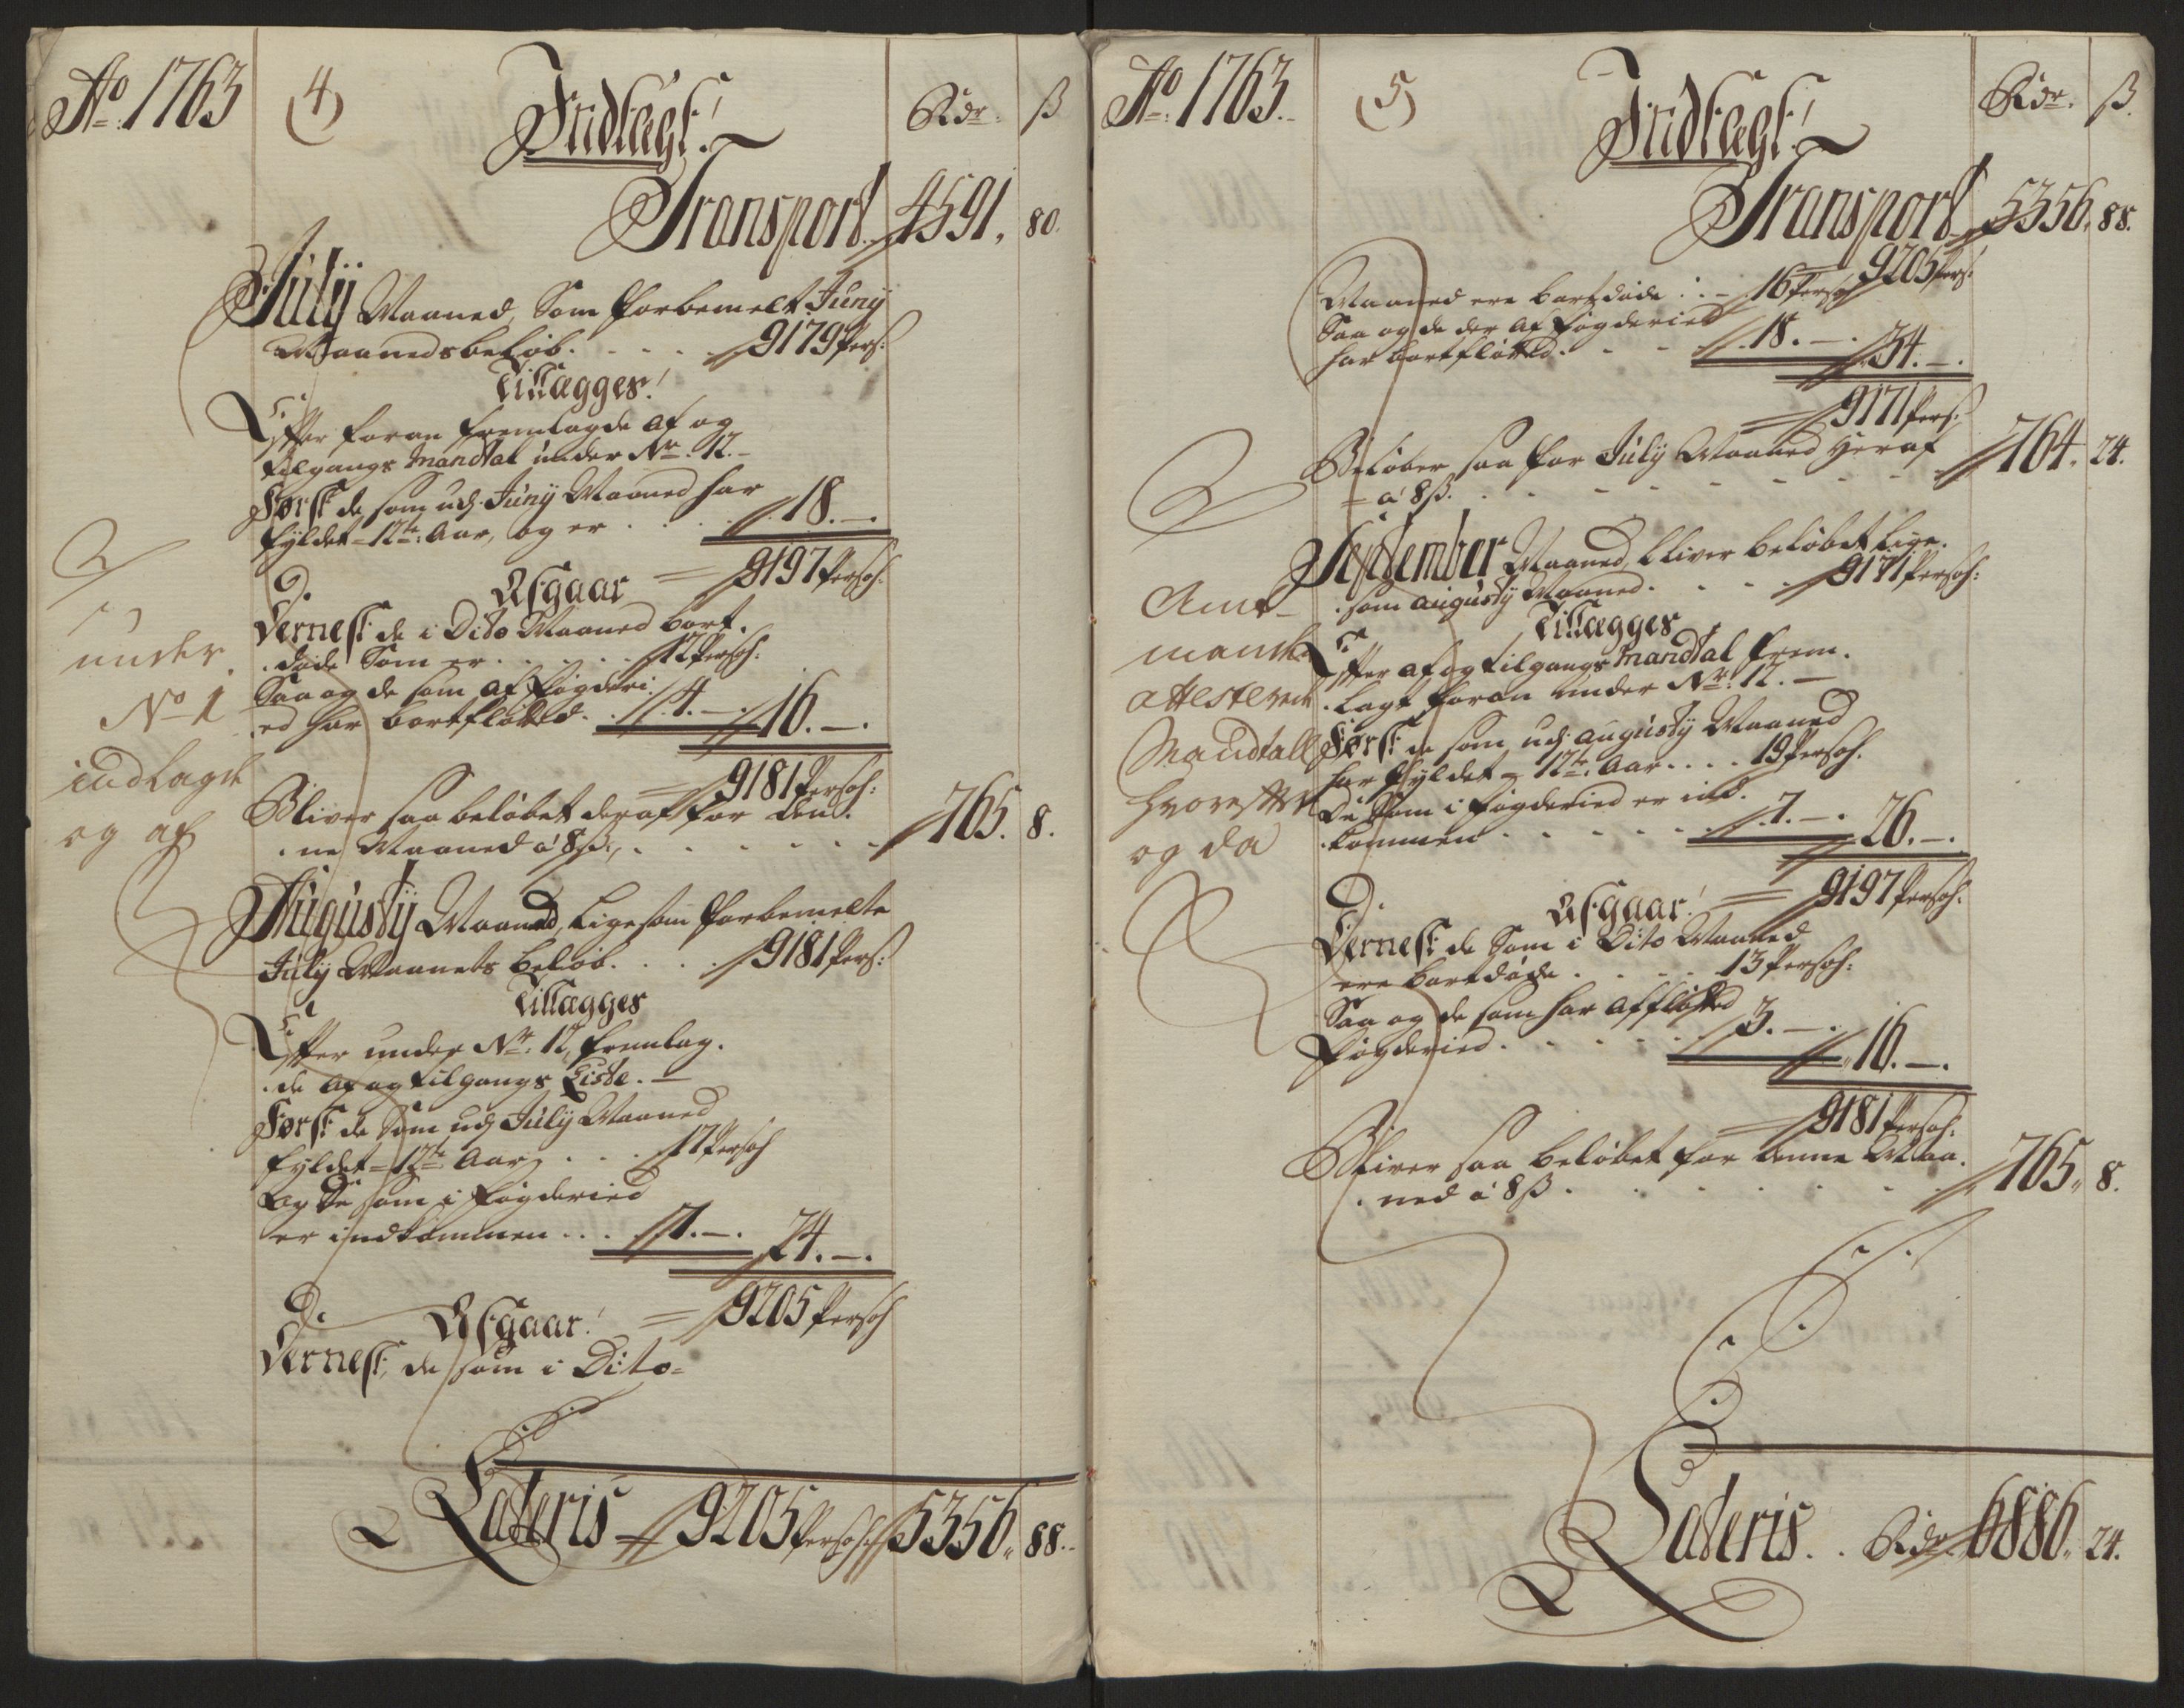 Ao 1763
(4)
Indtægt!
Rdr. ß
Transport 4591. 80.
July Maaned, Som forbemelt Juny
Maanedsbeløb. . . . . 9179 Pers:
Tillægges!
Efter foran fremlagde af og
tilgangs Mandtal under Nr. 12. -
Først de som udj Juny Maaned har
fyldet = 12te: Aar, og er . . . . 18. —.
= 9197 Persoh:
Afgaar
Dernest de i Dito Maaned bort.
.døde Som er . . . . . 12 Persoh:
Saa og de som af Fogderi.
.ed har bortfløtted. . 4. —. 16. —.
= 9181 Persoh:
Bliver saa beløbet deraf for den.
.ne Maaned á 8 ß., . . . . . . 765. 8.
Augusty Maaned, ligesom forbemelte
July Maanets beløb. . . . . 9181 Pers:
Tillægges
Efter under Nr: 12, fremlag.
.de af og tilgangs Liste. —
Først de Som udj July Maaned
fyldet = 12te Aar, . . . 17 Persoh
Og De som i Fogderied
er indkommen . . . 7. —. 24. —.
= 9205 Persoh
Afgaar!
Dernest, de som i Dito=
Lateris = 9205 Persoh. 5356. 88.
under
No 1
indlagde
og af
Ao 1763.
(5)
Indtægt!
Rdr. ß.
Transport 5356. 88.
9205 Pers:
Maaned ere bortdøde . . — 16 Persoh
Saa og de der af Fogderied
har bortfløtted. . . . . 18. —. 34. —.
= 9171 Pers:
Beløber saa for July Maaned heraf
= á 8 ß. . . . . . . . . 764. 24.
September Maaned, bliver beløbet lige.
.som augusty Maaned. . . . . 9171 Persoh:
Tillægges
Efter af og tilgangs Mandtal frem.
.lagt foran under Nr: 12. —
Først de som udj augusty Maaned
har fyldet = 12te: Aar . . . . 19 Persoh.
De Som i Fogderied er ind.
.kommen . . . . . . 7. —. 26. —.
= 9197 Persoh.
Afgaar!
Dernest de Som i Dito Maaned
ere bortdøde . . . . . 13 Persoh:
Saa og de som har affløtted
Fogderied . . . . . . 3. —. 16. —.
= 9181 Persoh:
Bliver saa beløbet for denne Maa.
.ned á 8 ß . . . . . . . 765. 8.
Lateris. . Rdr 6886. 24.
Amt-
mandens
attesterede
Mandtall
hvorefter
og da